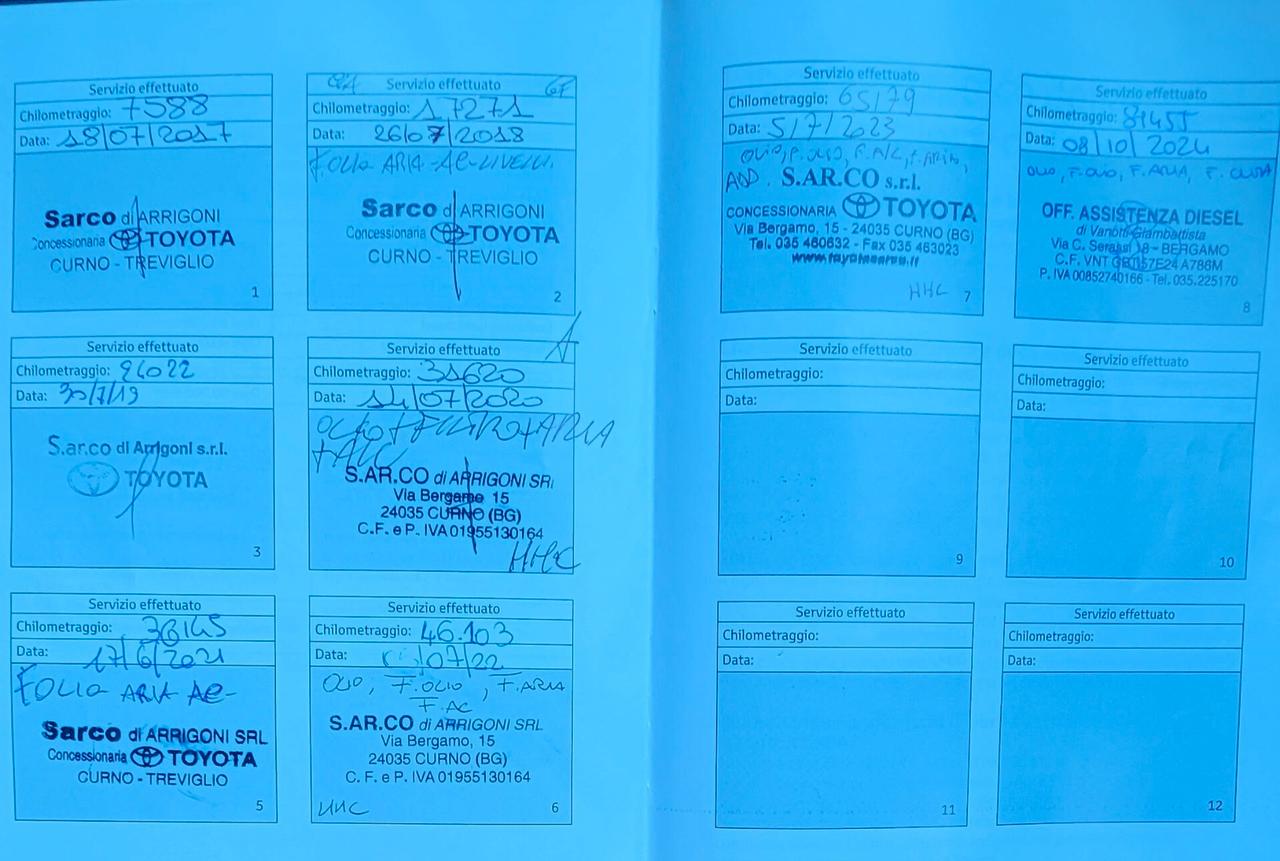 Servizio effettuato
Chilometraggio: 7588
Data: 18/07/2017
Sarco di ARRIGONI
Concessionaria TOYOTA
CURNO - TREVIGLIO
1
Servizio effettuato
Chilometraggio: 17271
Data: 26/07/2018
F.OLIO ARIA-AC-LIVELLI.
Sarco di ARRIGONI
Concessionaria TOYOTA
CURNO - TREVIGLIO
2
Servizio effettuato
Chilometraggio: 24022
Data: 30/7/19
S.ar.co di Arrigoni s.r.l.
TOYOTA
3
Servizio effettuato
Chilometraggio: 31620
Data: 14/07/2020
OLIO+FILTRO+ARIA
+A/C
S.AR.CO di ARRIGONI SRL
Via Bergamo 15
24035 CURNO (BG)
C.F. e P. IVA 01955130164
HHC
Servizio effettuato
Chilometraggio: 36145
Data: 17/6/2021
F.OLIO ARIA AC-
Sarco di ARRIGONI SRL
Concessionaria TOYOTA
CURNO - TREVIGLIO
5
Servizio effettuato
Chilometraggio: 46.103
Data: /07/22
OLIO, F.OLIO, F.ARIA
F.AC
S.AR.CO di ARRIGONI SRL
Via Bergamo, 15
24035 CURNO (BG)
C. F. e P. IVA 01955130164
HHC
6
Servizio effettuato
Chilometraggio: 65179
Data: 5/7/2023
OLIO, F. OLIO, F. A/C, F. ARIA,
ADD. S.AR.CO s.r.l.
CONCESSIONARIA TOYOTA
Via Bergamo, 15 - 24035 CURNO (BG)
Tel. 035 460632 - Fax 035 463023
www.toyotasarco.it
HHC 7
Servizio effettuato
Chilometraggio: 81455
Data: 08/10/2024
OLIO, F.OLIO, F.ARIA, F.CLIMA
OFF. ASSISTENZA DIESEL
di Vanotti Giambattista
Via C. Serassi 18 - BERGAMO
C.F. VNT 57E24 A786M
P. IVA 00852740166 - Tel. 035.225170
8
Servizio effettuato
Chilometraggio:
Data:
9
Servizio effettuato
Chilometraggio:
Data:
10
Servizio effettuato
Chilometraggio:
Data:
11
Servizio effettuato
Chilometraggio:
Data:
12